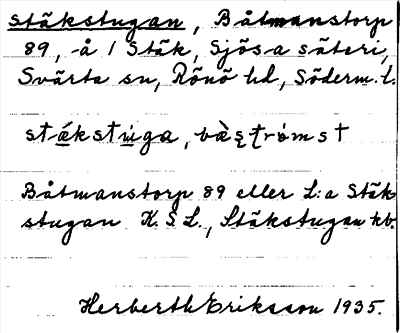 Stäkstugan, Båtmanstorp
89, å 1 Stäk, Sjösa säteri,
Svärta sn, Rönö hd, Söderm. l.
stǽkstùga, bàs̨t̨róm̀st
Båtmanstorp 89 eller L:a Stäk-
stugan K. S L., Stäkstugan kb.
Herberth Eriksson 1935.